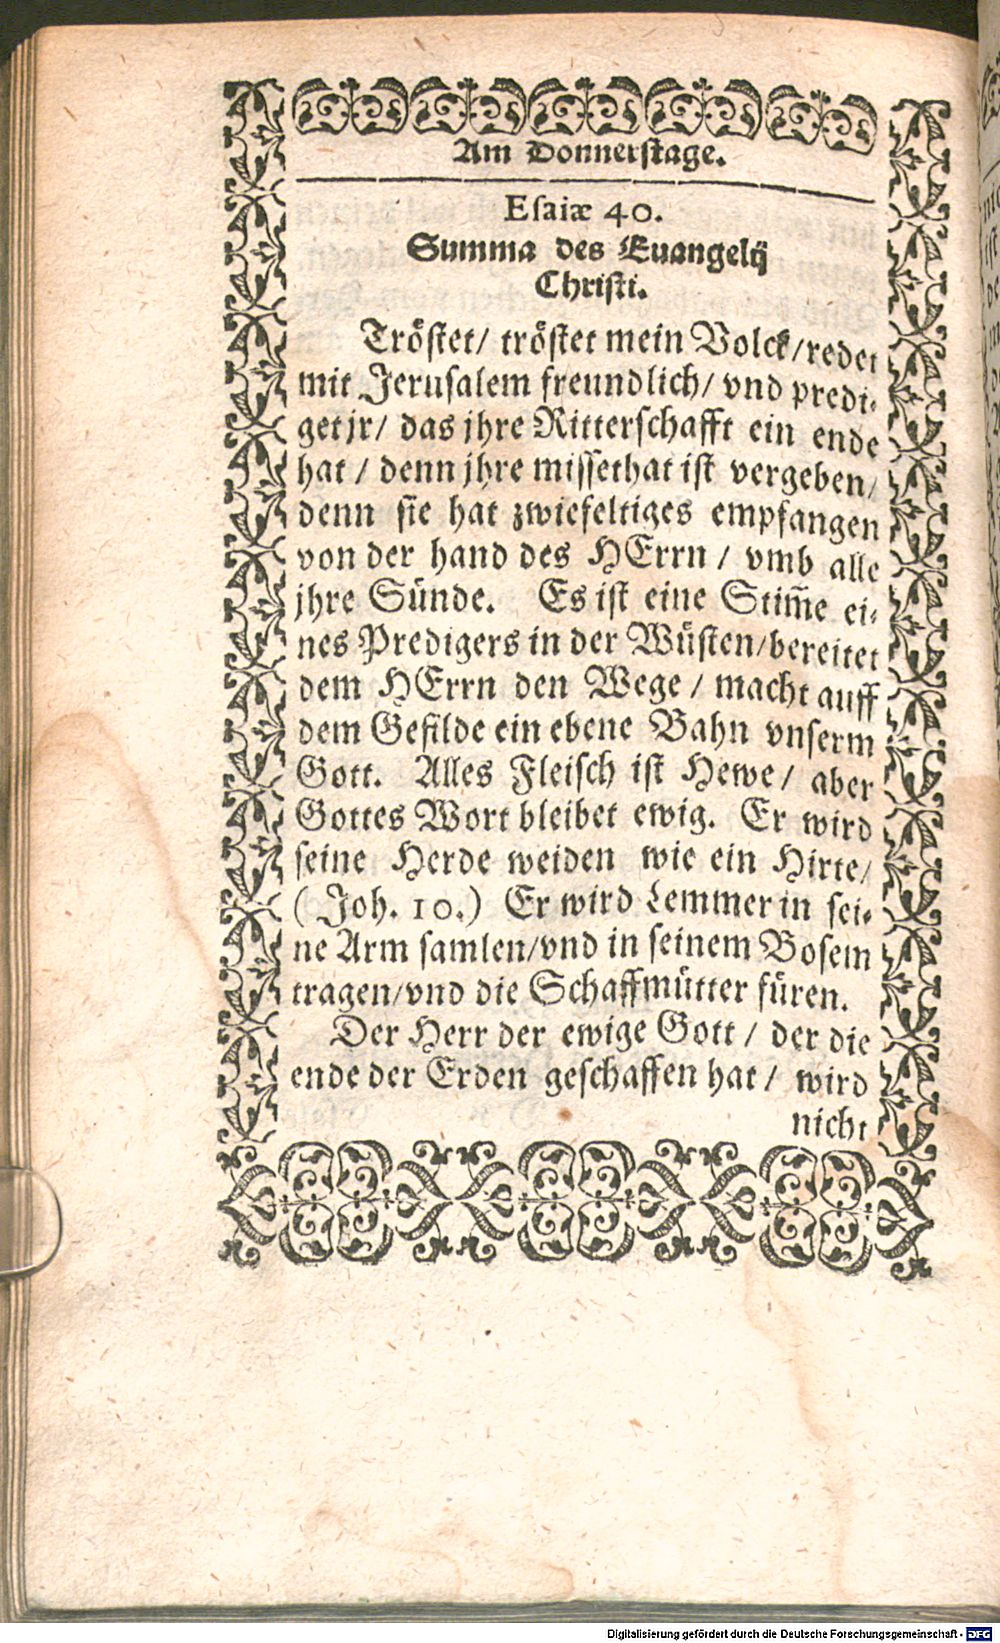 Am Donnerstage.
Esaiæ 40.
Summa des Euangelij
Christi.
Tröstet/ tröstet mein Volck/redet
mit Jerusalem freundlich/ vnd predi-
get jr/ das jhre Ritterschafft ein ende
hat / denn jhre missethat ist vergeben/
denn sie hat zwiefeltiges empfangen
von der hand des HErrn / vmb alle
jhre Sünde. Es ist eine Stim̃e ei-
nes Predigers in der Wüsten/bereitet
dem HErrn den Wege / macht auff
dem Gefilde ein ebene Bahn vnserm
Gott. Alles Fleisch ist Hewe/ aber
Gottes Wort bleibet ewig. Er wird
seine Herde weiden wie ein Hirte/
(Joh. 10.) Er wird Lemmer in sei-
ne Arm samlen/vnd in seinem Bosem
tragen/vnd die Schaffmütter füren.
Der Herr der ewige Gott / der die
ende der Erden geschaffen hat / wird
nicht
Digitalisierung gefördert durch die Deutsche Forschungsgemeinschaft - DFG